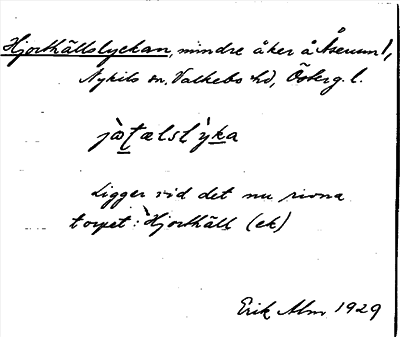 Hjorthällslyckan, mindre åker å Åserum 1,
Nykils sn. Valkebo hd, Österg. l.
jæ̀ʈælslỳka
Ligger vid det nu rivna
torpet: Hjorthäll (ek)
Erik Alm 1929